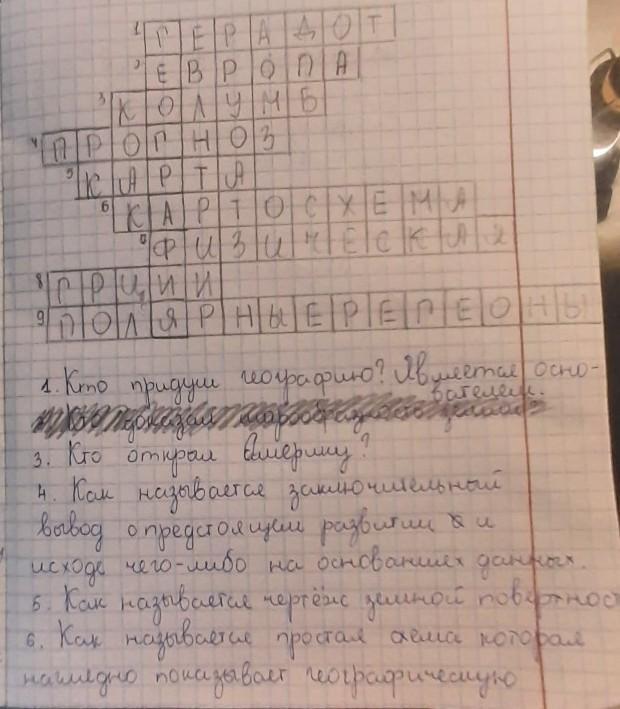 1 ГЕРАДОТ
2 ЕВРОПА
3 КОЛУМБ
4 ПРОГНОЗ
5 КАРТА
6 КАРТОСХЕМА
ФИЗИЧЕСКАЯ
8 ГРЦИИ
9 ПОЛЯРНЫЕРЕГЕОНЫ
1. Кто придум географию? Является осно-
вателем.
3. Кто открыл Америку?
4. Как называется заключительный
вывод о предстоящем развитии и
исходе чего-либо на основаниех данных.
5. Как называется чертёж земной поверхност
6. Как называется простая схема которая
наглядно показывает географическую